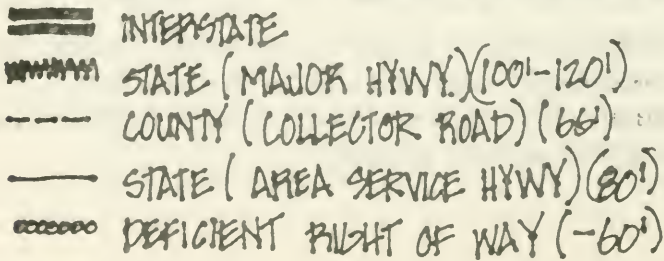 INTERSTATE
STATE (MAJOR HYWY.)(100'-120')
COUNTY (COLLECTOR ROAD) (66')
STATE (AREA SERVICE HYWY)(80')
DEFICIENT RIGHT OF WAY (-60')